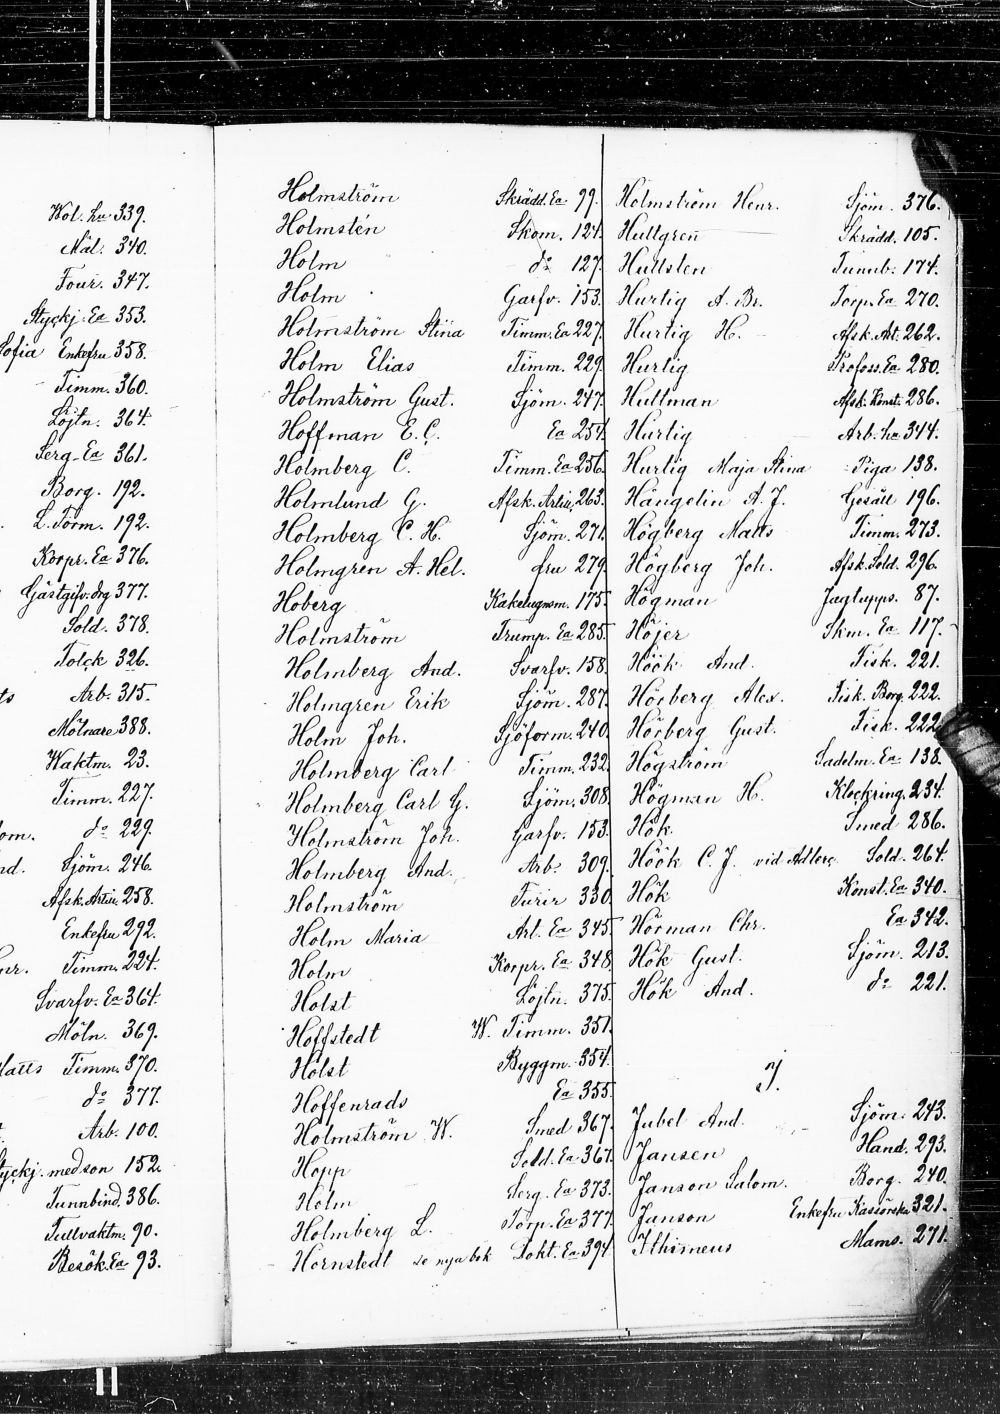 Wol. hu 339.
Mål. 340.
Four. 347.
Styckj. Ea 353.
Sofia Enkefru 358.
Timm. 360.
Löjtn. 364.
Serg. Ea 361.
Borg. 192.
L. Torm. 192.
Korpr. Ea 376.
Gästgifv. drg 377.
Sold. 378.
Tolck 326.
Arb. 315.
Mölnare 388.
Waktm. 23.
Timm. 227.
do 229.
Sjöm. 246.
Afsk. Artill. 258.
Enkefru 292.
Timm. 224.
Svarfv. Ea 364.
Möln. 369.
Matts Timm. 370.
do 377.
Arb. 100.
Styckj. med son 152.
Tunnbind. 386.
Tullvaktm. 90.
Besök. Ea 93.
Holmström Skrädd. Ea 99.
Holmstén Skom. 124.
Holm do 127.
Holm Garfv. 153.
Holmström Stina Timm. Ea 227.
Holm Elias Timm. 229.
Holmström Gust. Sjöm. 247.
Hoffman E. C. Ea 254.
Holmberg C. Timm. Ea 256.
Holmlund G. Afsk. Artill. 263.
Holmberg C. H. Sjöm. 271.
Holmgren A. Hel. fru 279.
Hoberg Kakelugnsm. 175.
Holmström Trump. Ea 285.
Holmberg And. Svarfv. 158.
Holmgren Erik Sjöm. 287.
Holm Joh. Sjöform. 240.
Holmberg Carl Timm. 232.
Holmberg Carl G. Sjöm. 308.
Holmström Joh. Garfv. 153.
Holmberg And. Arb. 309.
Holmström Furir 330.
Holm Maria Art. Ea 345.
Holm Korpr. Ea 348.
Holst Löjtn. 375.
Hoffstedt W. Timm. 351.
Holst Byggm. 354.
Hoffenrads Ea 355.
Holmström W. Smed 367.
Hopp Sold. Ea 367.
Holm Serg. Ea 373.
Holmberg L. Torp. Ea 377.
Hornstedt se nya bok Dokt. Ea 394.
Holmström Henr. Sjöm. 376.
Hultgren Skrädd. 105.
Hultsten Tunnb. 174.
Hurtig A. Br. Torp. Ea 270.
Hurtig H. Afsk. Art. 262.
Hurtig Profoss. Ea 280.
Hultman Afsk. Konst. 286.
Hurtig Arb. hu 344.
Hurtig Maja Stina Piga 138.
Hängelin A. J. Gesäll 196.
Högberg Matts Timm. 273.
Högberg Joh. Afsk. Sold. 296.
Högman Jagtupps. 87.
Höjer Skm. Ea 117.
Höök And. Fisk. 221.
Hörberg Alex. Fisk. Borg. 222.
Hörberg Gust. Fisk. 222.
Högström Sadelm. Ea 138.
Högman H. Klockring. 234.
Hök Smed 286.
Höök C. J. vid Adlerc. Sold. 264.
Hök Konst. Ea 340.
Hörman Chr. Ea 342.
Hök Gust. Sjöm. 213.
Hök And. do 221.
J.
Jubel And. Sjöm. 243.
Jansen Hand. 293.
Janson Salom. Borg. 240.
Janson Enkefru Kassörska 321.
Ithimeus Mams. 271.